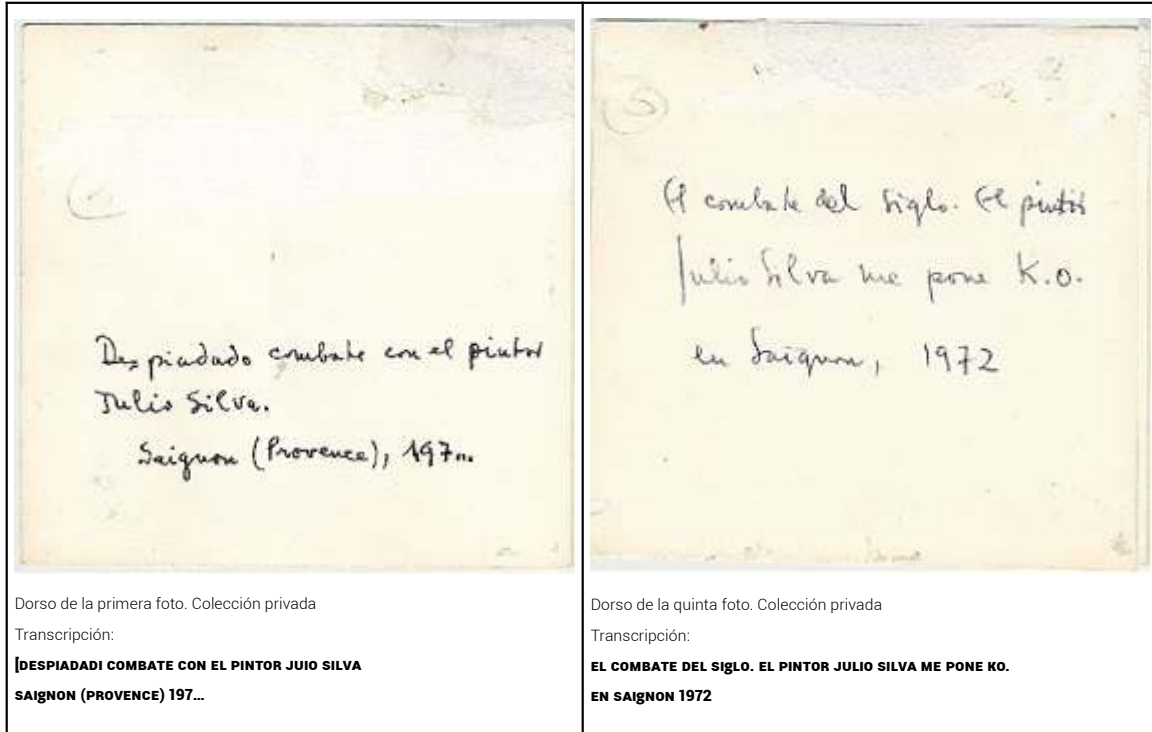 Despiadado combate con el pintor
Julio Silva.
Saignon (Provence), 197...
Dorso de la primera foto. Colección privada
Transcripción:
[DESPIADADI COMBATE CON EL PINTOR JUIO SILVA
SAIgNON (PROVENCE) 197...
El combate del siglo. El pintor
Julio Silva me pone K.O.
en Saignon, 1972
Dorso de la quinta foto. Colección privada
Transcripción:
EL COMBATE DEL SIgLO. EL PINTOR JULIO SILVA ME PONE KO.
EN SAIgNON 1972